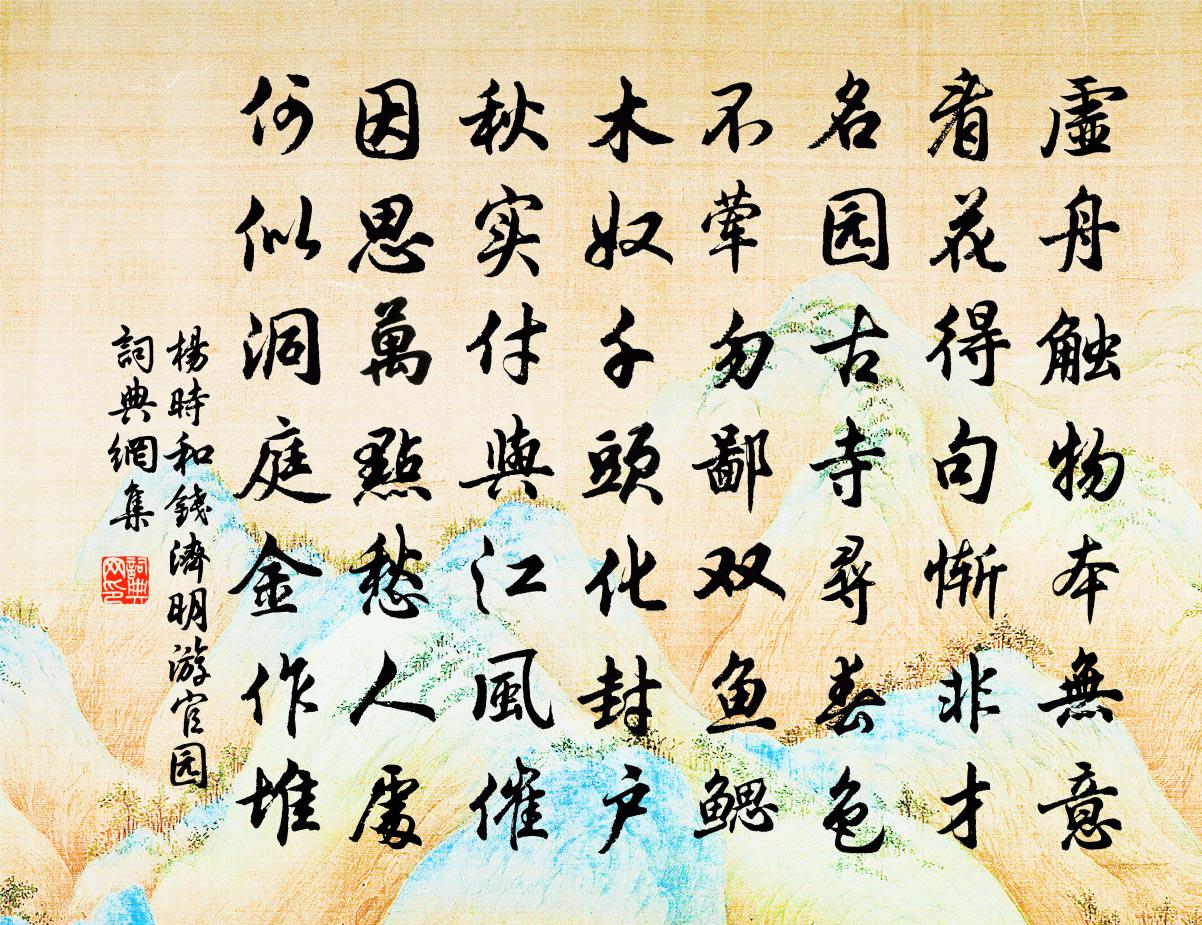 虛舟触物本無意
看花得句惭非才
名园古寺尋春色
不荤勿鄙双鱼鳃
木奴千頭化封户
秋实付與江風催
因思萬點愁人處
何似洞庭金作堆
楊時和錢濟明游官园
詞典網集
詞典网印